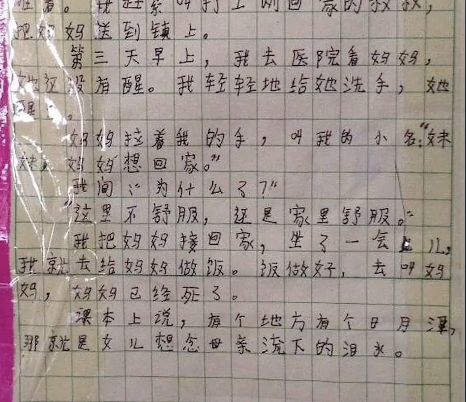 难着。我赶紧叫打工刚回家的叔叔，
把妈妈送到镇上。
第三天早上，我去医院看妈妈，
她还没有醒。我轻轻地给她洗手，她
醒了。
妈妈拉着我的手，叫我的小名:"妹
妹，妈妈想回家。"
我问:"为什么了?"
"这里不舒服，还是家里舒服。"
我把妈妈接回家，坐了一会儿,
我就去给妈妈做饭。饭做好，去叫妈
妈，妈妈已经死了。
课本上说，有个地方有个日月潭,
那就是女儿想念母亲流下的泪水。